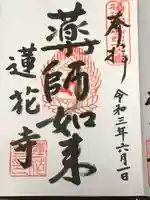 奉拝
令和三年六月一日
薬師如来
蓮花寺